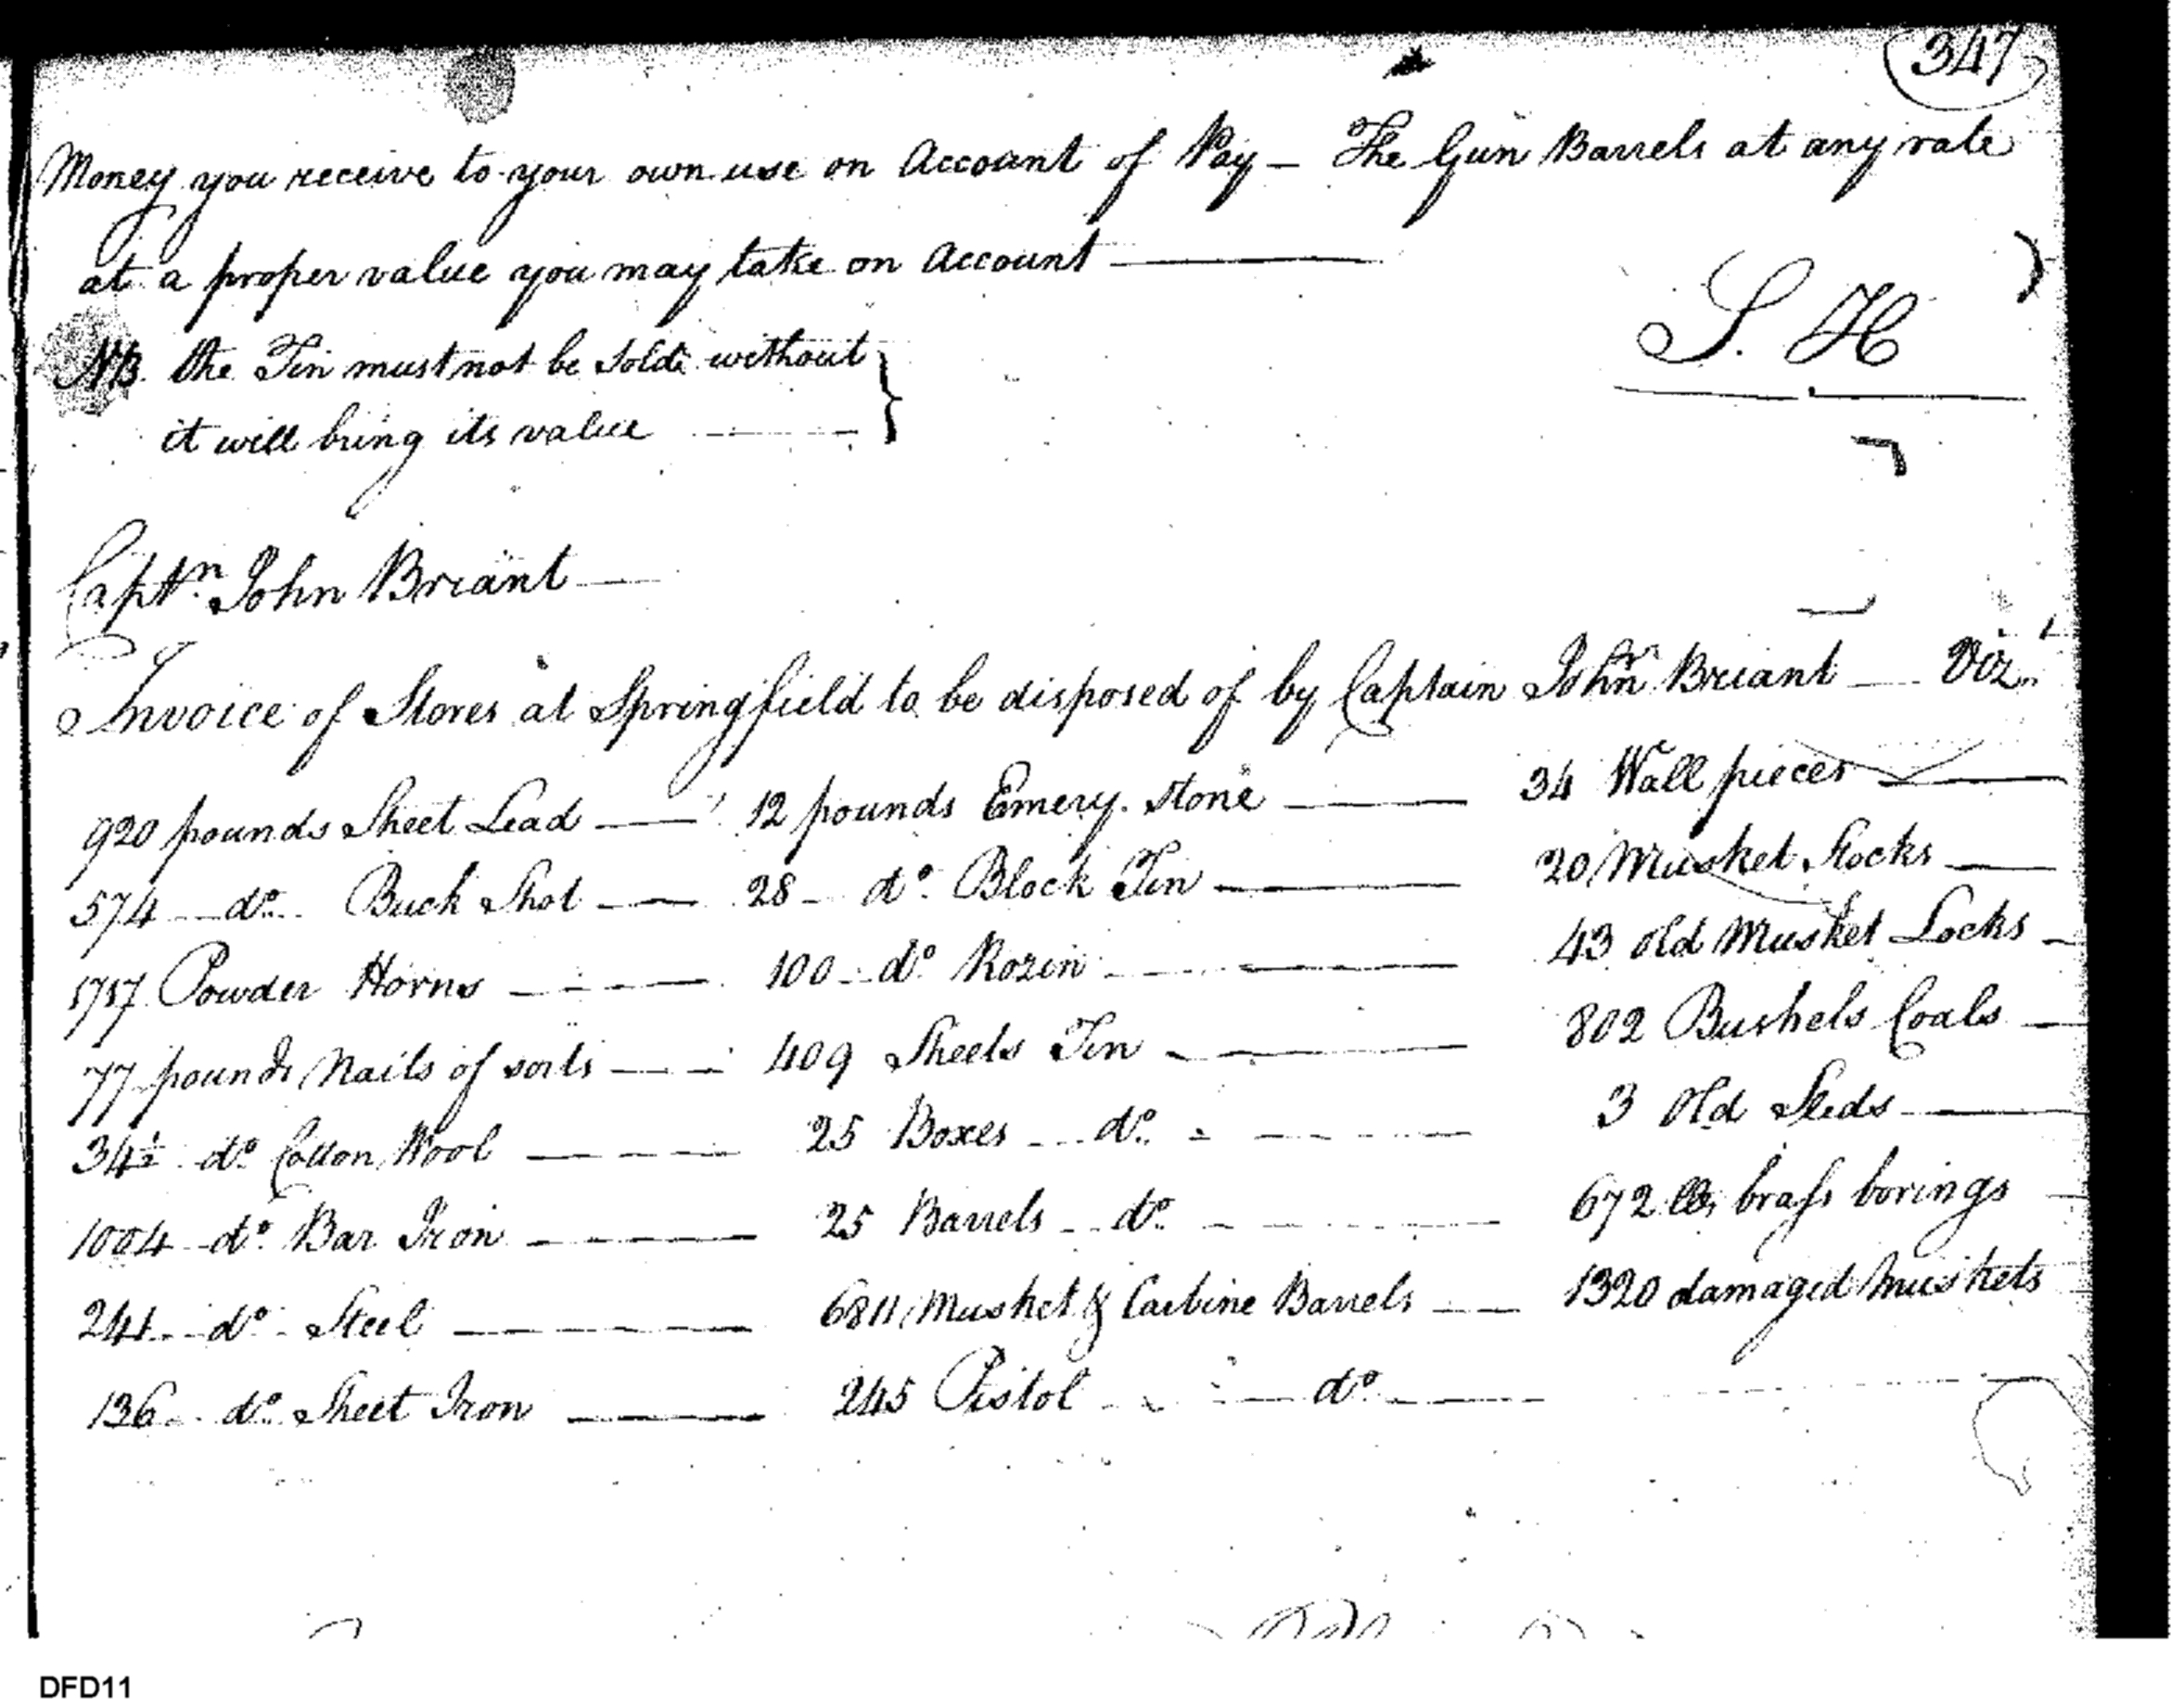 347
Money you receive to your own use on Account of Pay — The Gun Barrels at any rate
at a proper value you may take on Account —
NB. the Tin must not be Sold without
it will bring its value —
S. H
Captn. John Briant —
Invoice of Stores at Springfield to be disposed of by Captain John Briant — Vizt.
920 pounds Sheet Lead — 12 pounds Emery Stone — 34 Wall pieces —
574 do. Buck Shot — 28 do. Block Tin — 20 Musket Stocks —
1717 Powder Horns — 100 do. Rozin — 43 old Musket Locks —
77 pounds Nails of sorts — 409 Sheets Tin — 802 Bushels Coals —
34½ do. Cotton Wool — 25 Boxes do. — 3 Old Sleds —
1004 do. Bar Iron — 25 Barrels do. — 672 lbs brass borings —
241 do. Steel — 6811 Musket & Carbine Barrels — 1320 damaged Muskets
136 do. Sheet Iron — 245 Pistol — do. —
DFD11